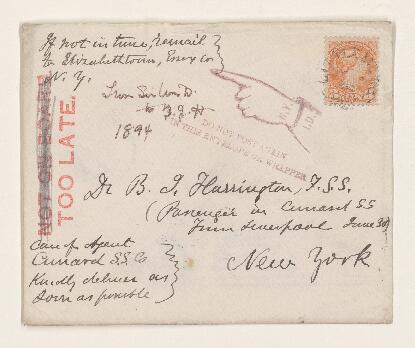 If not in time, remail
to Elizabethtown, Essex Co
N. Y.
From Sir Wm D.
to B. J. H
1894
NOT ON BOARD
TOO LATE.
N.Y.
DO NOT POST AGAIN
IN THIS ENVELOPE OR WRAPPER
Dr B. J. Harrington, F.G.S.
(Passenger in Cunard SS
from Liverpool June 30)
New York
Care of Agent
Cunard S.S. Co
Kindly deliver as
soon as possible